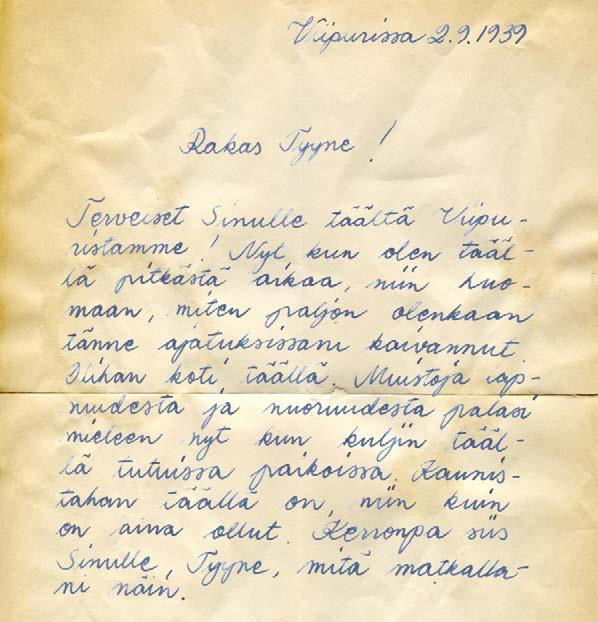 Viipurissa 2.9.1939
Rakas Tyyne!
Terveiset Sinulle täältä Viipu-
ristamme! Nyt, kun olen tääl-
lä pitkästä aikaa, niin huo-
maan, miten paljon olenkaan
tänne ajatuksissani kaivannut.
Olihan koti täällä. Muistoja lap-
suudesta ja nuoruudesta palasi
mieleen nyt kun kuljin tääl-
lä tutuissa paikoissa. Kaunis-
tahan täällä on, niin kuin
on aina ollut. Kerronpa siis
Sinulle, Tyyne, mitä matkalla-
ni näin.